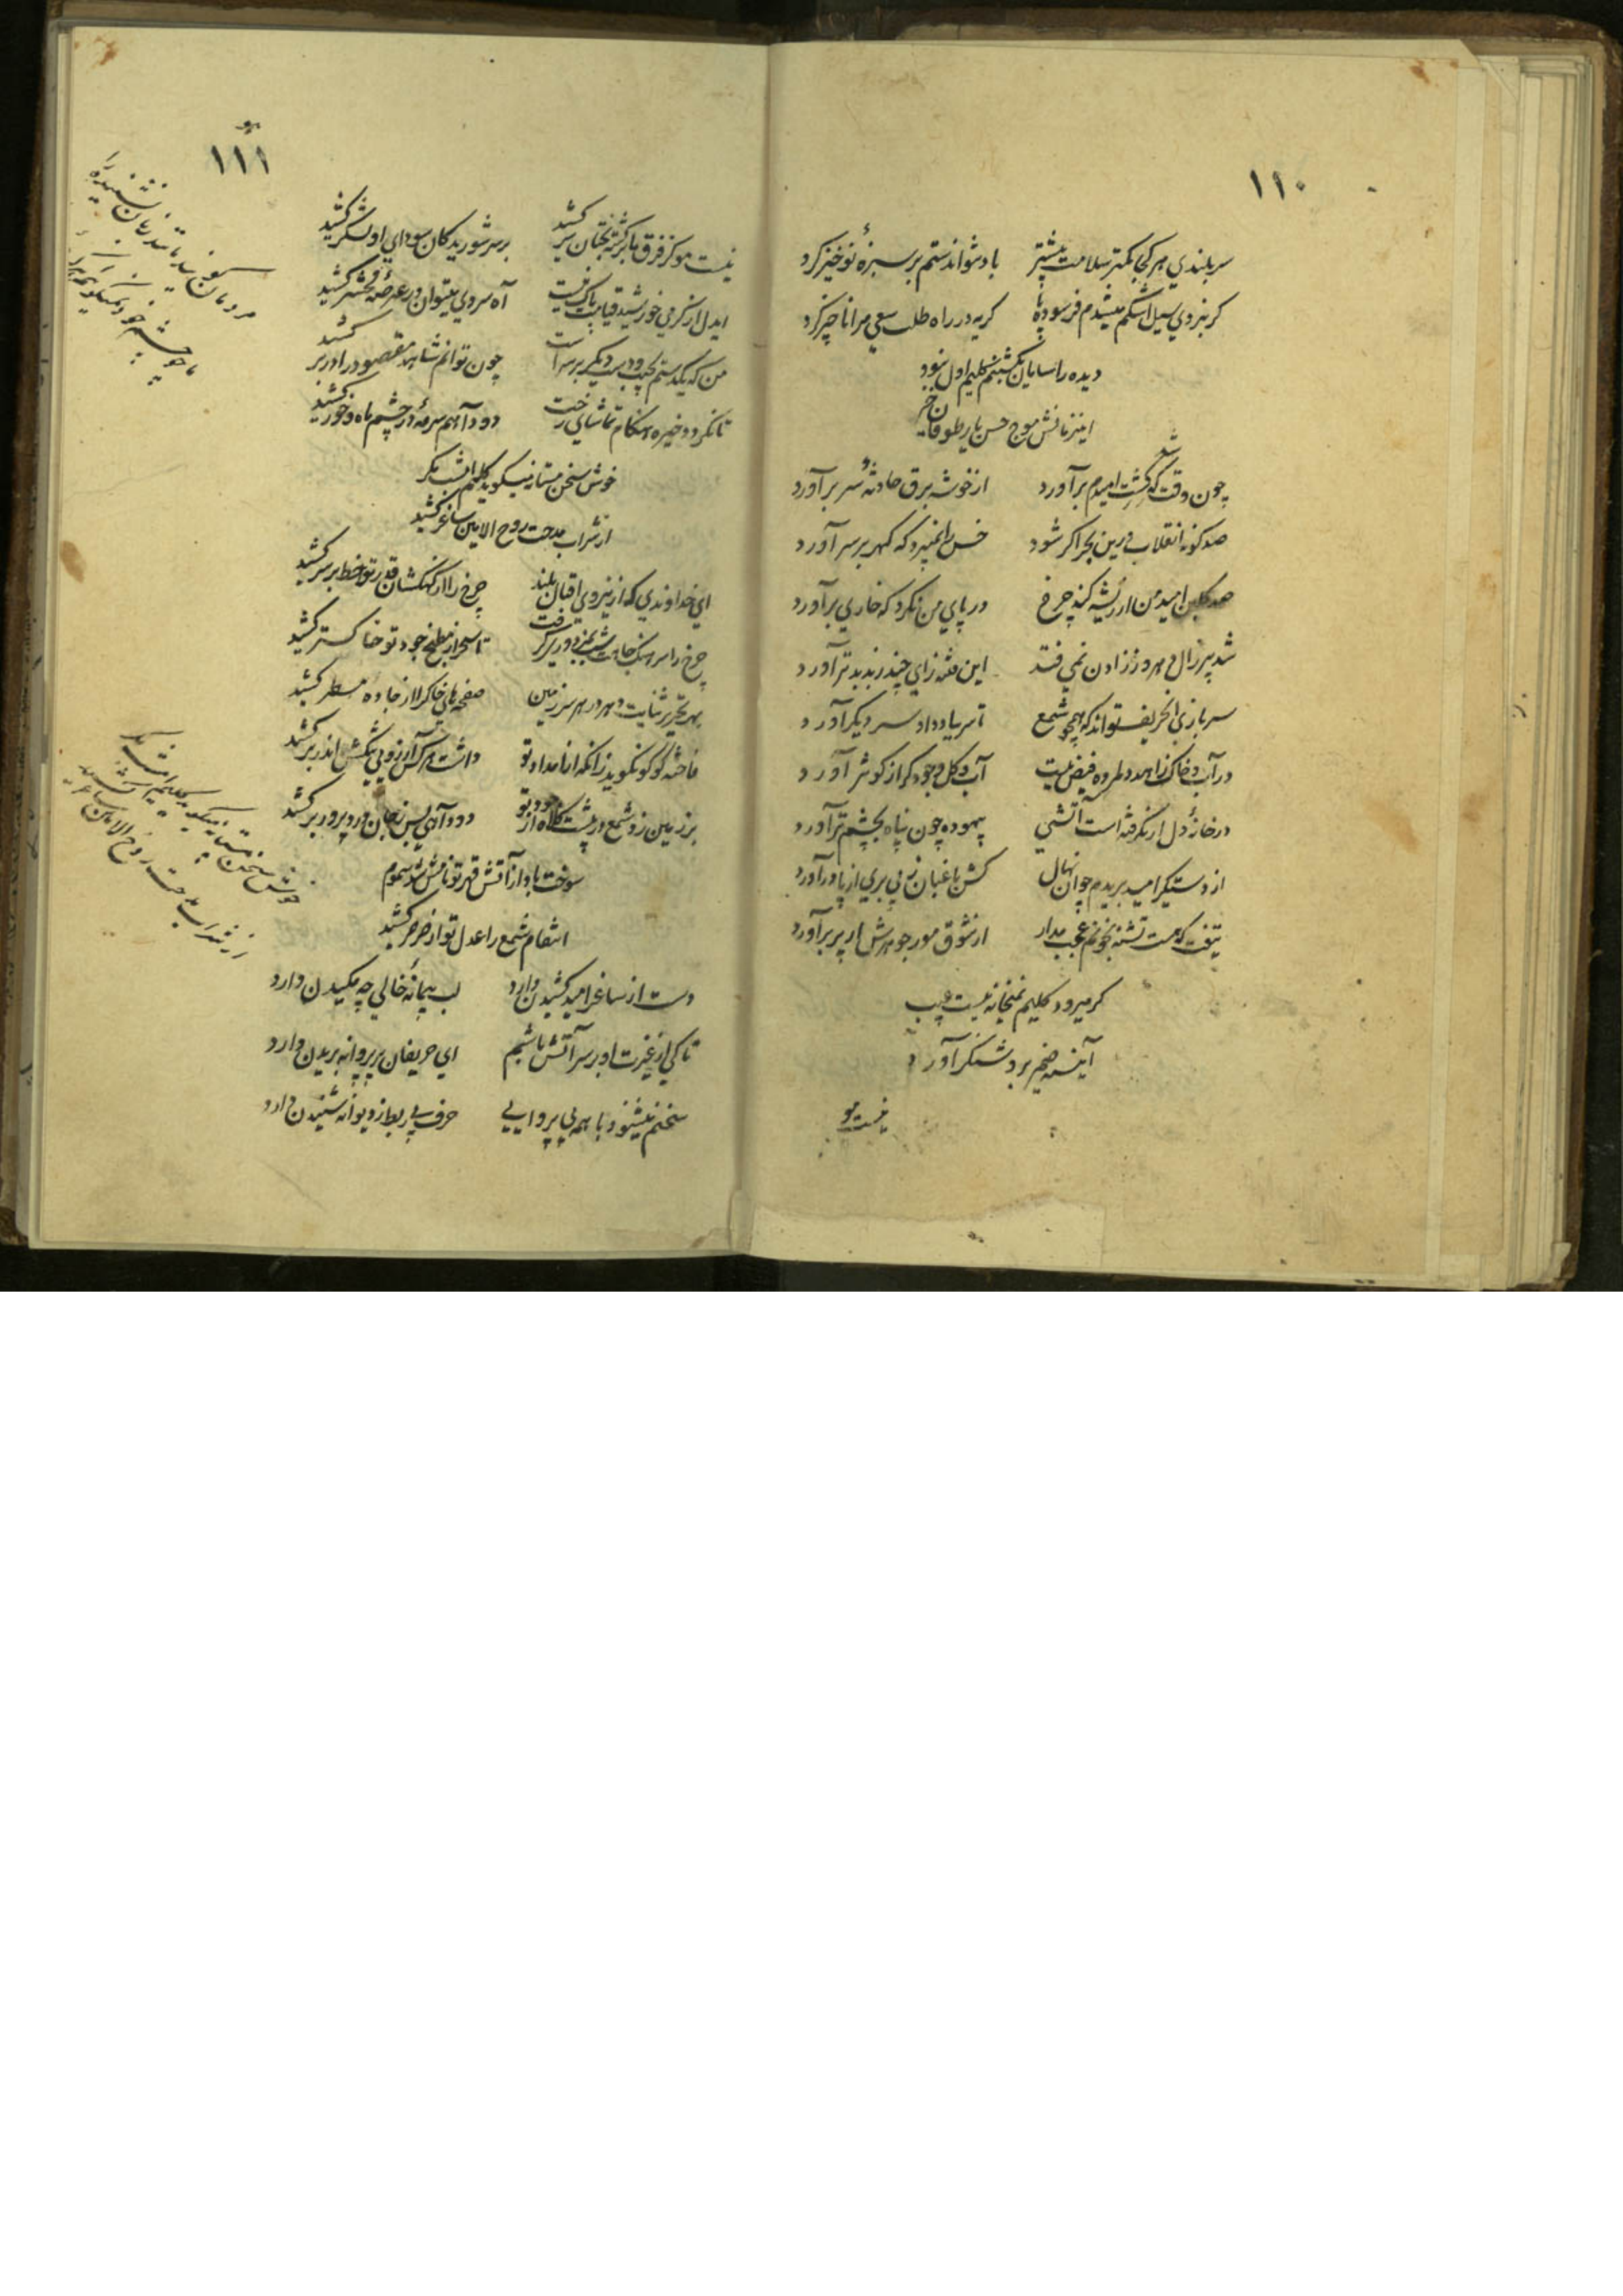 ۱۱۰
سربلندی هر کجا کمتر سلامت بیشتر
باد نتواند ستم بر سبزهٔ نوخیز کرد
کر نبردی سیل اشکم میشدم فرسوده پا
کریه در راه طلب سعی مرا ناچیز کرد
دیده را سامان کلیم اول نبود
اینزمانش موج حسن یار طوفان خیز
چون وقت شد که کشت امیدم بر آورد
از خوشه برق حادثهٔ سر بر آورد
صد کونه انقلاب درین بحر اکر شود
خس را نمیبرد که کهر بر سر آورد
صد کلبن امید من از ریشه کند چرخ
در پای من نکرد که خاری بر آورد
شد پیر زال دهر و ز زادن نمی فتد
این فتنه زای چند ز بد بدتر آورد
سربازی آنحریف تواند که همچو شمع
تا سر بباد داد سر دیکر آورد
در آب و خاک زاهد دلمرده فیض نیست
آب و کل وجود کر از کوثر آورد
در خانهٔ دل ار نکرفته است آتشی
بیهوده چون پناه بچشم تر آورد
از دستکیر امید بریدم چو آن نهال
کش باغبان ز بی بری از پا در آورد
تیغت که هست تشنه بخونم عجب مدار
از شوق مور جوهرش ار پر بر آورد
کر میرود کلیم بمیخانه نیست عیب
آیینه ضمیر بروشنکر آورد
نیست مو
۱۱۱
نیست مو کز فرق ما برکشته بختان سر کشید
بر سر شوریدکان سودای او لشکر کشید
ایدل از کرمی خورشید قیامت باک نیست
آه سردی میتوان در عرصهٔ محشر کشید
من که یکدستم بچسب و دست دیکر بر سر است
چون توانم شاهد مقصود را در بر کشید
تا نکردد خیره هنکام تماشای رخت
دود آهم سرمهٔ در چشم ماه و خور کشید
خوش سخن مستانه میکوید کلیم امشب مکر
از شراب مدحت روح الامین ساغر کشید
ای خداوندی که از نیروی اقبال بلند
چرخ را از کهکشان قدر تو خط بر سر کشید
چرخ را سر
تا سحر از مطبخ جود تو خاکستر کشید
بهر تحریر ثنایت دهر در هر سرزمین
صفحه های خاک را از جاده مسطر کشید
فاخته کو کو نکوید زانکه از امداد تو
داشت هر کس آرزویی پیکش اندر بر کشید
بر زمین زد شمع در کلاه از دود تو
دود آهی بس ز جان درد پرور بر کشید
سوخت باد از آتش قهر تو نامش شد سموم
انتقام شمع را عدل تو از صرصر کشید
دست از ساغر امید کشیدن دارد
لب پیمانهٔ خالی چه مکیدن دارد
تا کی از غیرت او بر سر آتش باشم
ای حریفان پر پروانه بریدن دارد
سخنم میشنود با همه بی پروایی
حرف بی ربط ز دیوانه شنیدن دارد
خوش سخن مستانه میکوید کلیم امشب مکر
از شراب مدحت روح الامین ساغر کشید